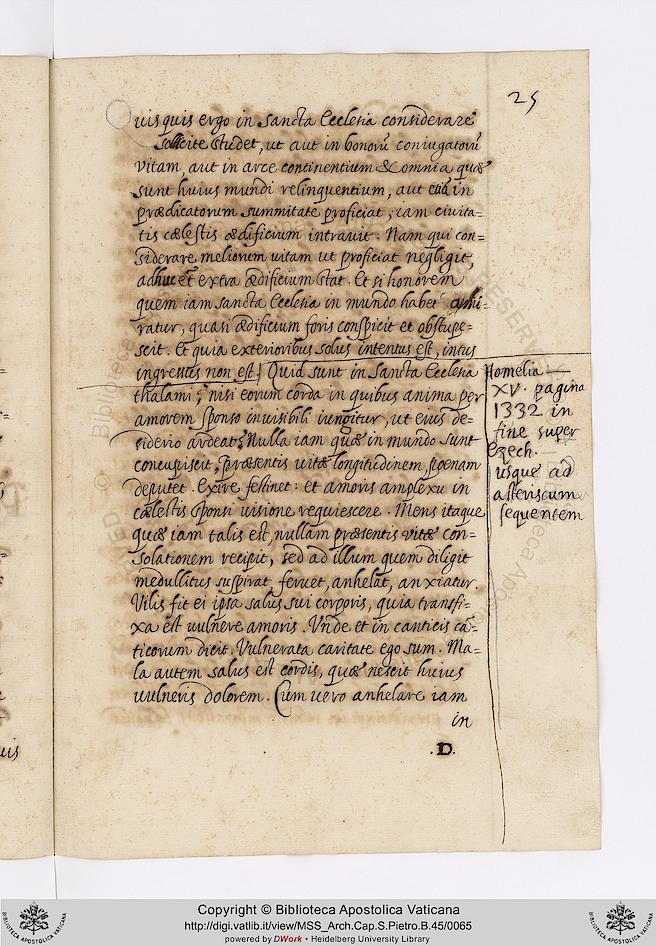 25
Quisquis ergo in sancta Ecclesia considerare
sollicite studet, ut aut in bonorũ coniugatorũ
vitam, aut in arce continentium & omnia quæ
sunt huius mundi relinquentium, aut etiã in
prædicatorum summitate proficiat; iam civita=
tis cælestis ædificium intravit. Nam qui con=
siderare meliorum uitam ut proficiat negligit,
adhuc extra ædificium stat. Et si honorem
quem iam sancta Ecclesia in mundo habet admi=
ratur, quasi ædificium foris conspicit et obstupe=
scit. Et quia exterioribus solus intentus est, intus
ingressus non est. Quid sunt in sancta Ecclesia
thalami; nisi eorum corda in quibus anima per
amorem sponso inuisibili iungitur, ut eius de=
siderio ardeat; Nulla iam quæ in mundo sunt
concupiscit, præsentis uitæ longitudinem, pœnam
deputet. Exire festinet: et amoris amplexu in
cælestis sponsi uisione requiescere. Mens itaque
quæ iam talis est, nullam præsentis vitæ con=
solationem recipit, sed ad illum quem diligit
medullitus suspirat, feruet, anhelat, anxiatur.
Vilis fit ei ipsa salus sui corporis, quia transfi=
xa est uulnere amoris. Vnde et in canticis cã=
ticorum dicit. Vulnerata caritate ego sum. Ma=
la autem salus est cordis, quæ nescit huius
uulneris dolorem. Cum uero anhelare iam
in
.D.
Homelia
XV. pagina
1332 in
fine super
Ezech.
usque ad
asteriscum
sequentem
uis
Copyright © Biblioteca Apostolica Vaticana
http://digi.vatlib.it/view/MSS_Arch.Cap.S.Pietro.B.45/0065
powered by DWork • Heidelberg University Library